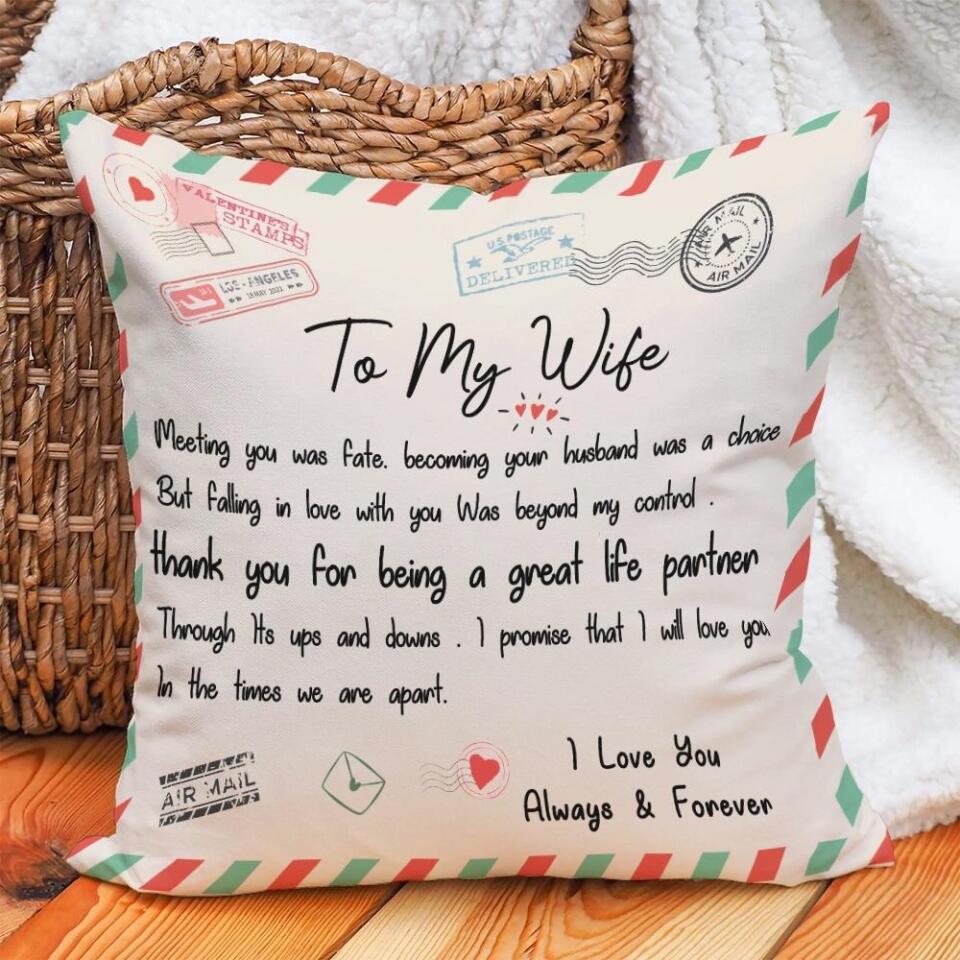 VALENTINE'S
STAMPS
LOS-ANGELES
18 MAY 2021
U.S. POSTAGE
DELIVERED
AIR MAIL
AIR MAIL
To My Wife
Meeting you was fate. becoming your husband was a choice
But falling in love with you Was beyond my control .
thank you for being a great life partner
Through Its ups and downs . I promise that I will love you
In the times we are apart.
AIR MAIL
I Love You
Always & Forever